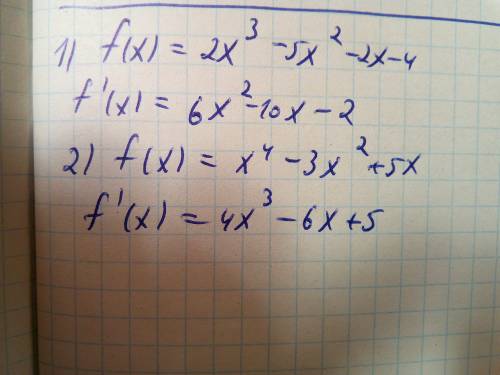 1) f(x) = 2x³ - 5x² - 2x - 4
f'(x) = 6x² - 10x - 2
2) f(x) = x⁴ - 3x² + 5x
f'(x) = 4x³ - 6x + 5